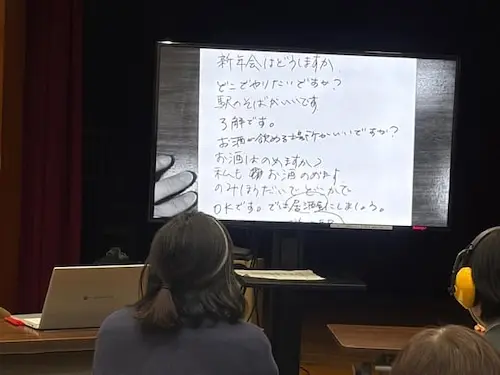 新年会はどうしますか
どこでやりたいですか?
駅のそばがいいです
了解です。
お酒が飲める場所がいいですか?
お酒はのめますか?
私も お酒のめます
のみほうだいで どこかで
OKです。では居酒屋にしましょう。